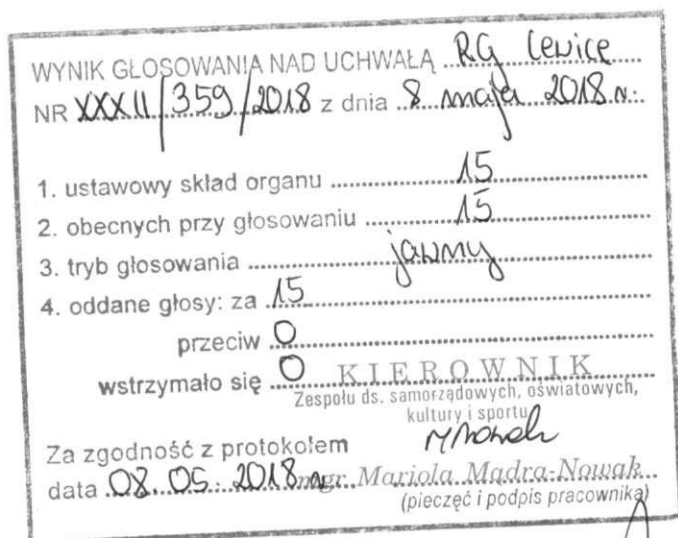 WYNIK GŁOSOWANIA NAD UCHWAŁĄ RG Lewice
NR XXXII/359/2018 z dnia 8 maja 2018 r.
1. ustawowy skład organu 15
2. obecnych przy głosowaniu 15
3. tryb głosowania jawny
4. oddane głosy: za 15
przeciw 0
wstrzymało się 0 KIEROWNIK
Zespołu ds. samorządowych, oświatowych,
kultury i sportu
Za zgodność z protokołem MNowak
data 08.05.2018 r. mgr Mariola Mądra-Nowak
(pieczęć i podpis pracownika)